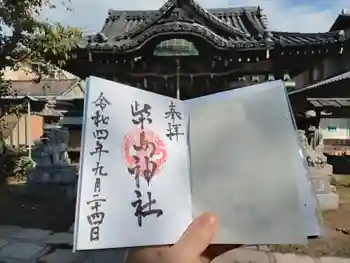 奉拝
柴山神社
令和四年九月二十四日